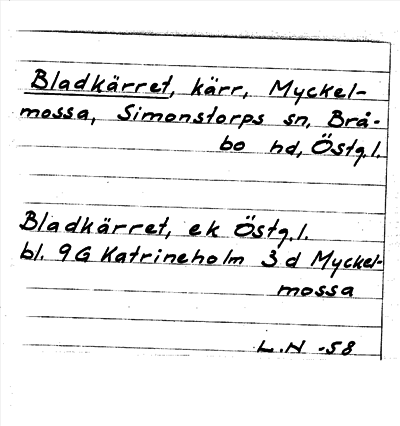 Bladkärret, kärr, Myckel-
mossa, Simonstorps sn, Brå-
bo hd, Östg.l.
Bladkärret, ek Östg.l.
bl. 9G Katrineholm 3d Myckel-
mossa
L.N -58